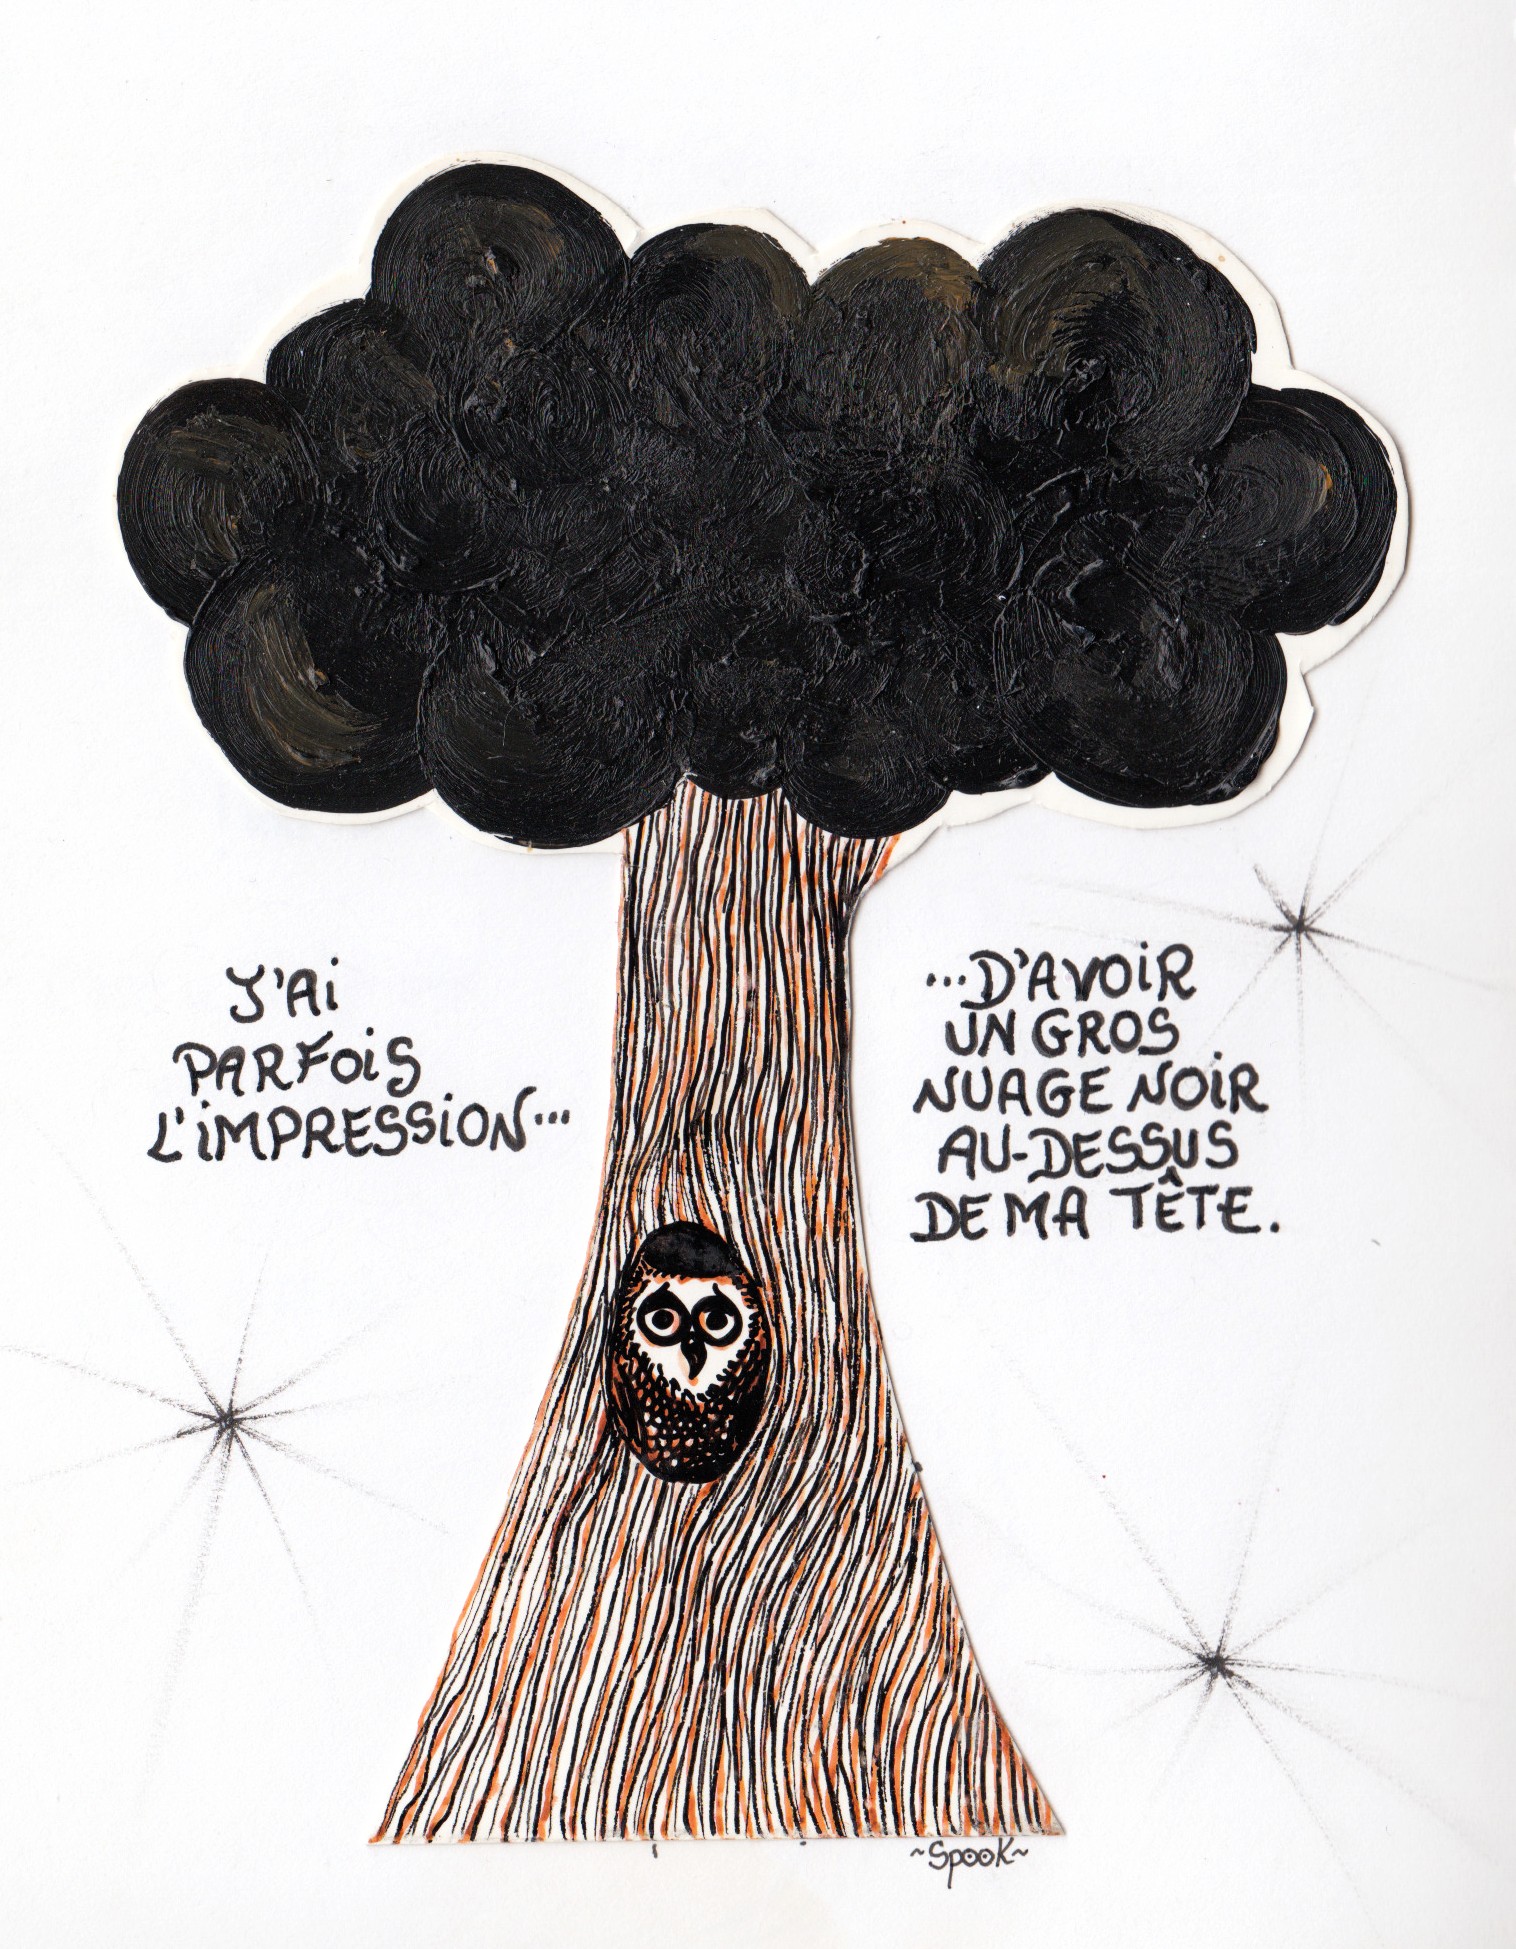 J'Ai
PARFOiS
L'iMPRESSiON...
...D'AVOiR
UN GROS
NUAGE NOiR
AU-DESSUS
DE MA TÊTE.
~SpooK~